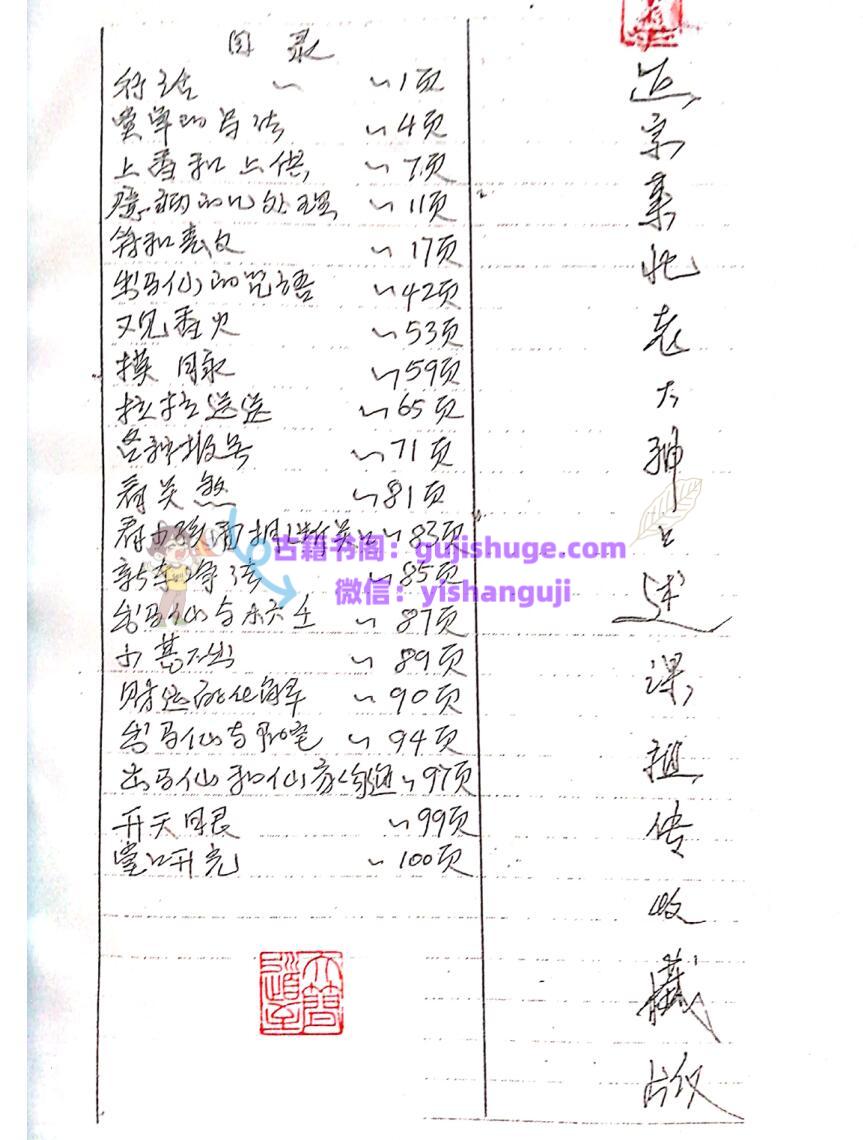 目录
行话 ~ ~1页
堂单的写法 ~4页
上香和上供 ~7页
癔病的 处理 ~11页
符和表文 ~17页
出马仙的咒语 ~42页
又见香火 ~53页
摸 ~59页
拉拉送送 ~65页
各种报号 ~71页
看关煞 ~81页
看 ~83页
~85页
出马仙与六壬 ~87页
~89页
财运的化解 ~90页
出马仙与阴宅 ~94页
出马仙和仙家沟通 ~97页
开天目 ~99页
堂口开光 ~100页
东北老大神口述 课 祖传收藏版
古籍书阁：gujishuge.com
微信：yishanguji